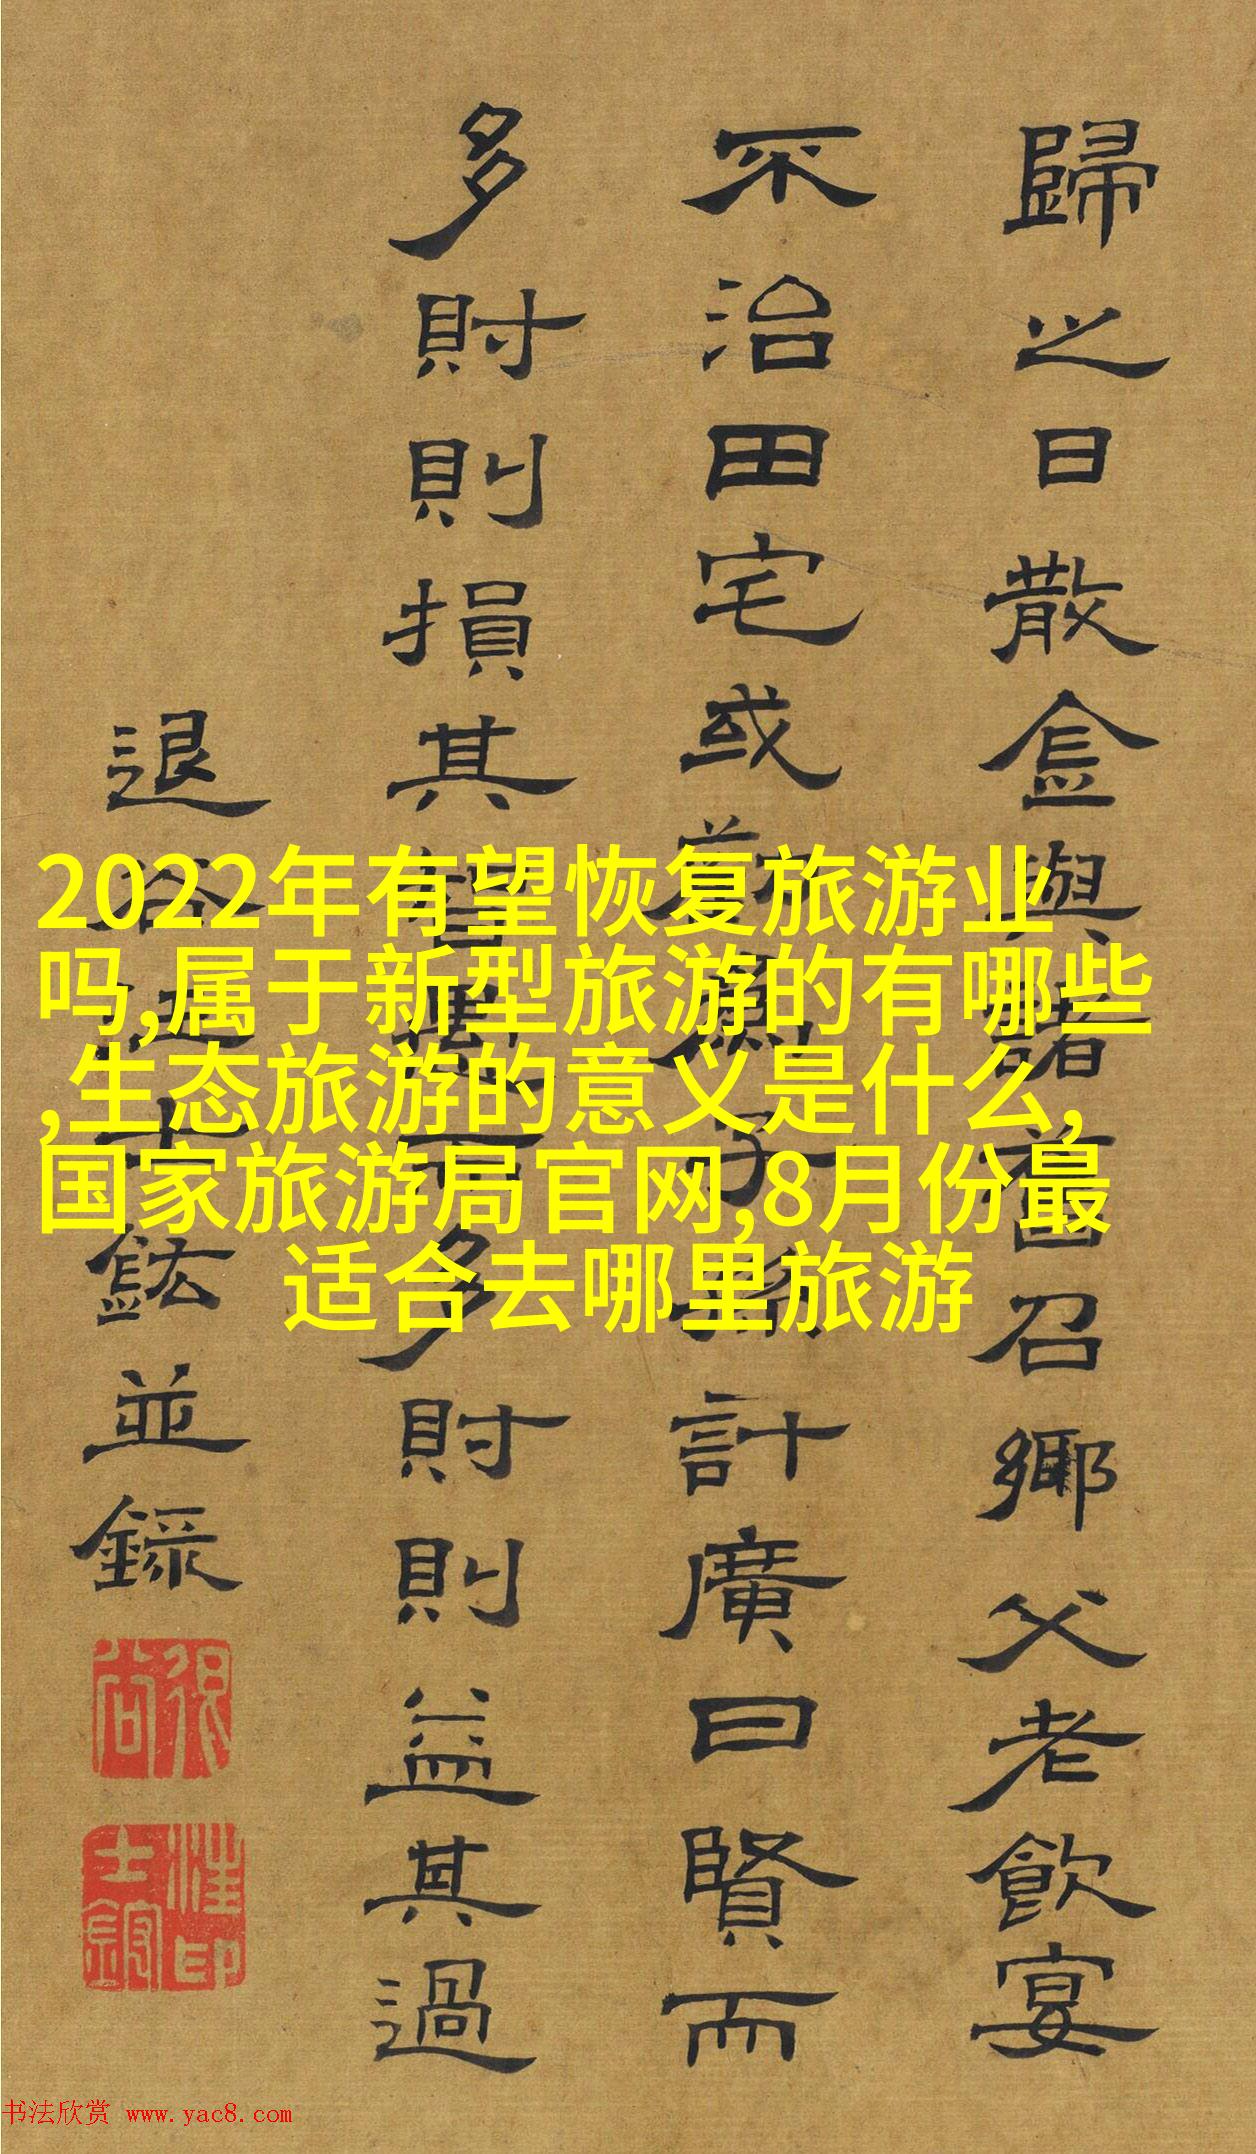 歸之日散金與諸舊召鄉父老飲宴
不治田宅或為子孫計廣曰賢而
多財則損其智愚而多財則益其過
退谷汪士鋐並錄
汪印士鋐
2022年有望恢复旅游业
吗,属于新型旅游的有哪些
,生态旅游的意义是什么,
国家旅游局官网,8月份最
适合去哪里旅游
书法欣赏 www.yac8.com